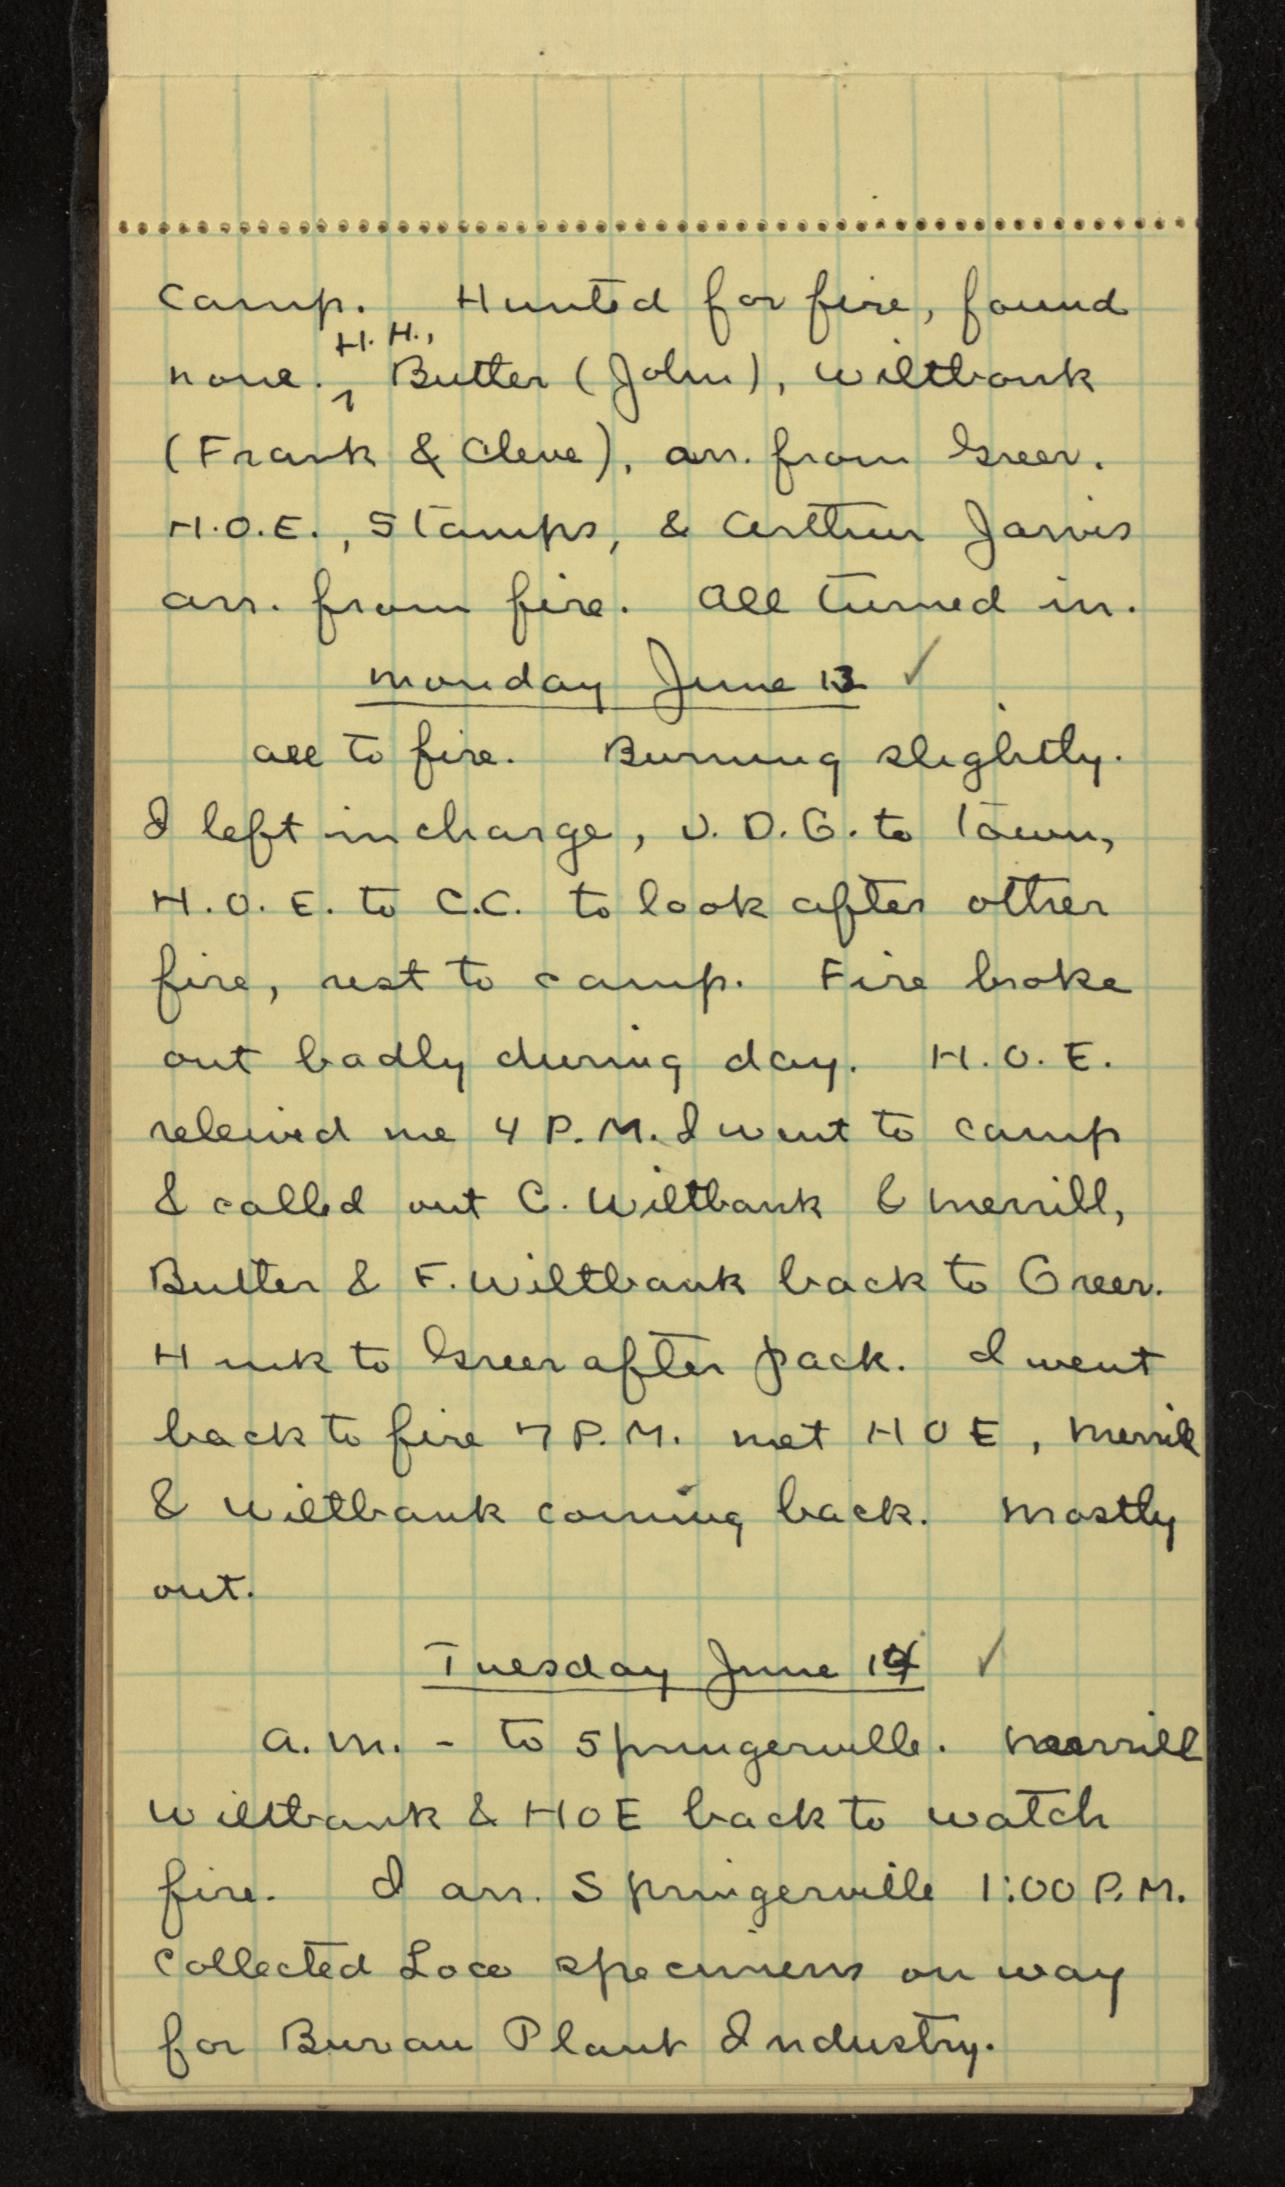 camp. Hunted for fire, found
none. H.H., Butler (John), Wiltbank
(Frank & Cleve), arr. from Greer.
H.O.E., Stamps, & Arthur Jarvis
arr. from fire. All turned in.
Monday June 13 ✓
All to fire. Burning slightly.
I left in charge, J.D.G. to town,
H.O.E. to C.C. to look after other
fire, rest to camp. Fire broke
out badly during day. H.O.E.
releived me 4 P.M. I went to camp
& called out C. Wiltbank & Merrill,
Butler & F. Wiltbank back to Greer.
Hink to Greer after pack. I went
back to fire 7 P.M. met HOE, Merrill
& Wiltbank coming back. Mostly
out.
Tuesday June 14 ✓
A.M. - to Springerville. Merrill
Wiltbank & HOE back to watch
fire. I arr. Springerville 1:00 P.M.
Collected Loco specimens on way
for Bureau Plant Industry.